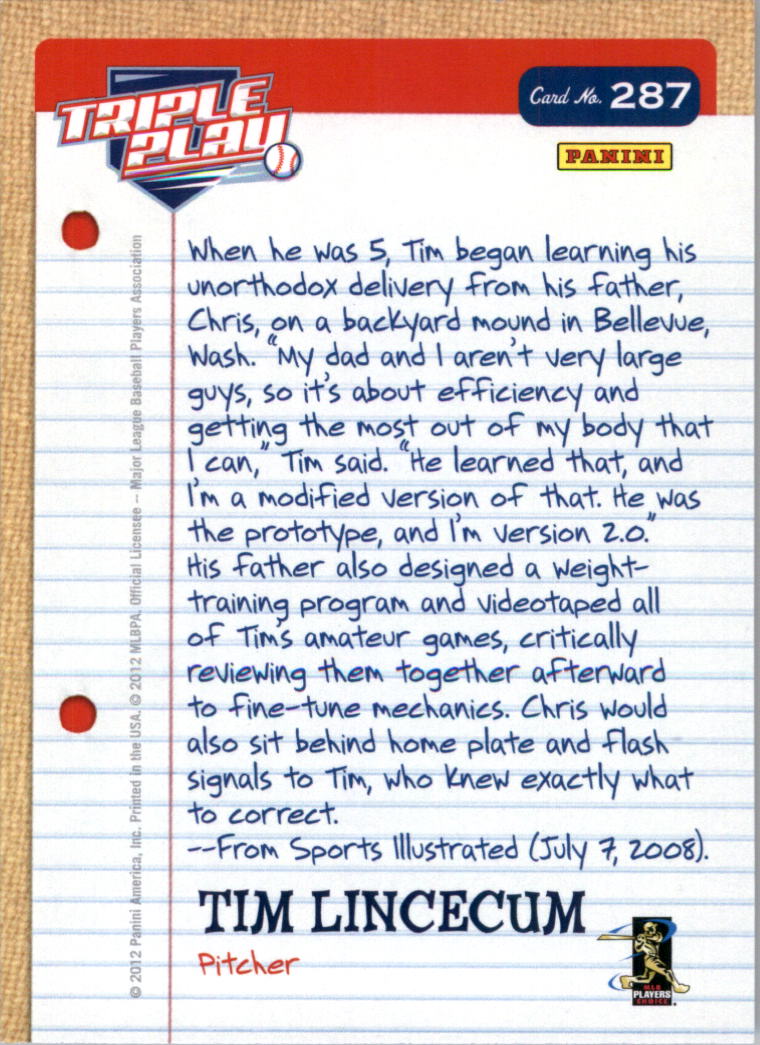 TRIPLE
PLAY
Card No. 287
PANINI
When he was 5, Tim began learning his
unorthodox delivery from his father,
Chris, on a backyard mound in Bellevue,
Wash. "My dad and I aren't very large
guys, so it's about efficiency and
getting the most out of my body that
I can," Tim said. "He learned that, and
I'm a modified version of that. He was
the prototype, and I'm version 2.0."
His father also designed a weight-
training program and videotaped all
of Tim's amateur games, critically
reviewing them together afterward
to fine-tune mechanics. Chris would
also sit behind home plate and flash
signals to Tim, who knew exactly what
to correct.
--From Sports Illustrated (July 7, 2008).
TIM LINCECUM
Pitcher
MLB
PLAYERS
CHOICE
© 2012 Panini America, Inc. Printed in the USA. © 2012 MLBPA. Official Licensee -- Major League Baseball Players Association